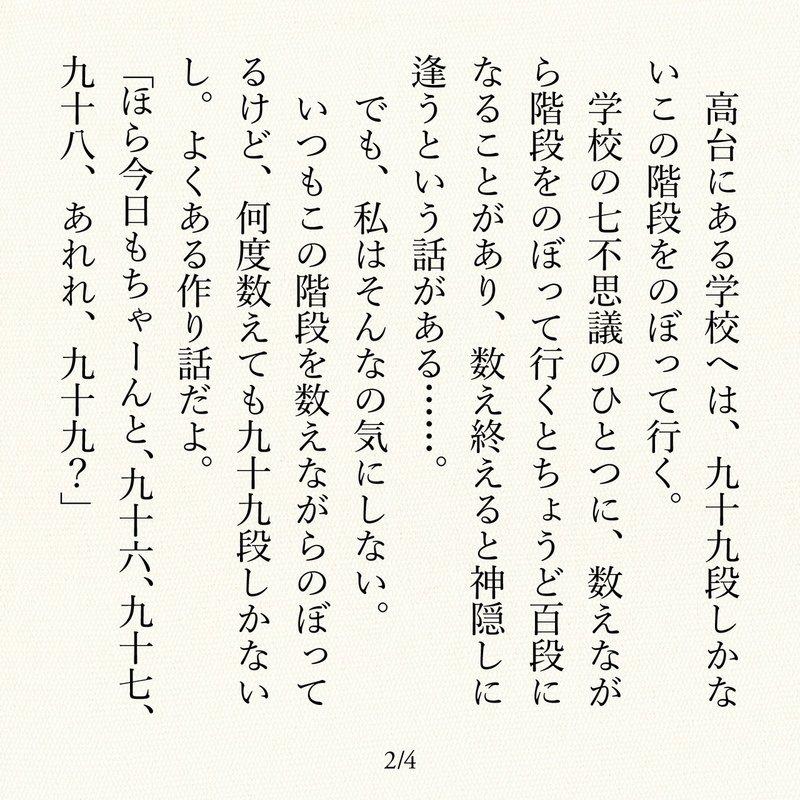 高台にある学校へは、九十九段しかな
いこの階段をのぼって行く。
　学校の七不思議のひとつに、数えなが
ら階段をのぼって行くとちょうど百段に
なることがあり、数え終えると神隠しに
逢うという話がある……。
　でも、私はそんなの気にしない。
　いつもこの階段を数えながらのぼって
るけど、何度数えても九十九段しかない
し。よくある作り話だよ。
「ほら今日もちゃーんと、九十六、九十七、
九十八、あれれ、九十九？」
2/4